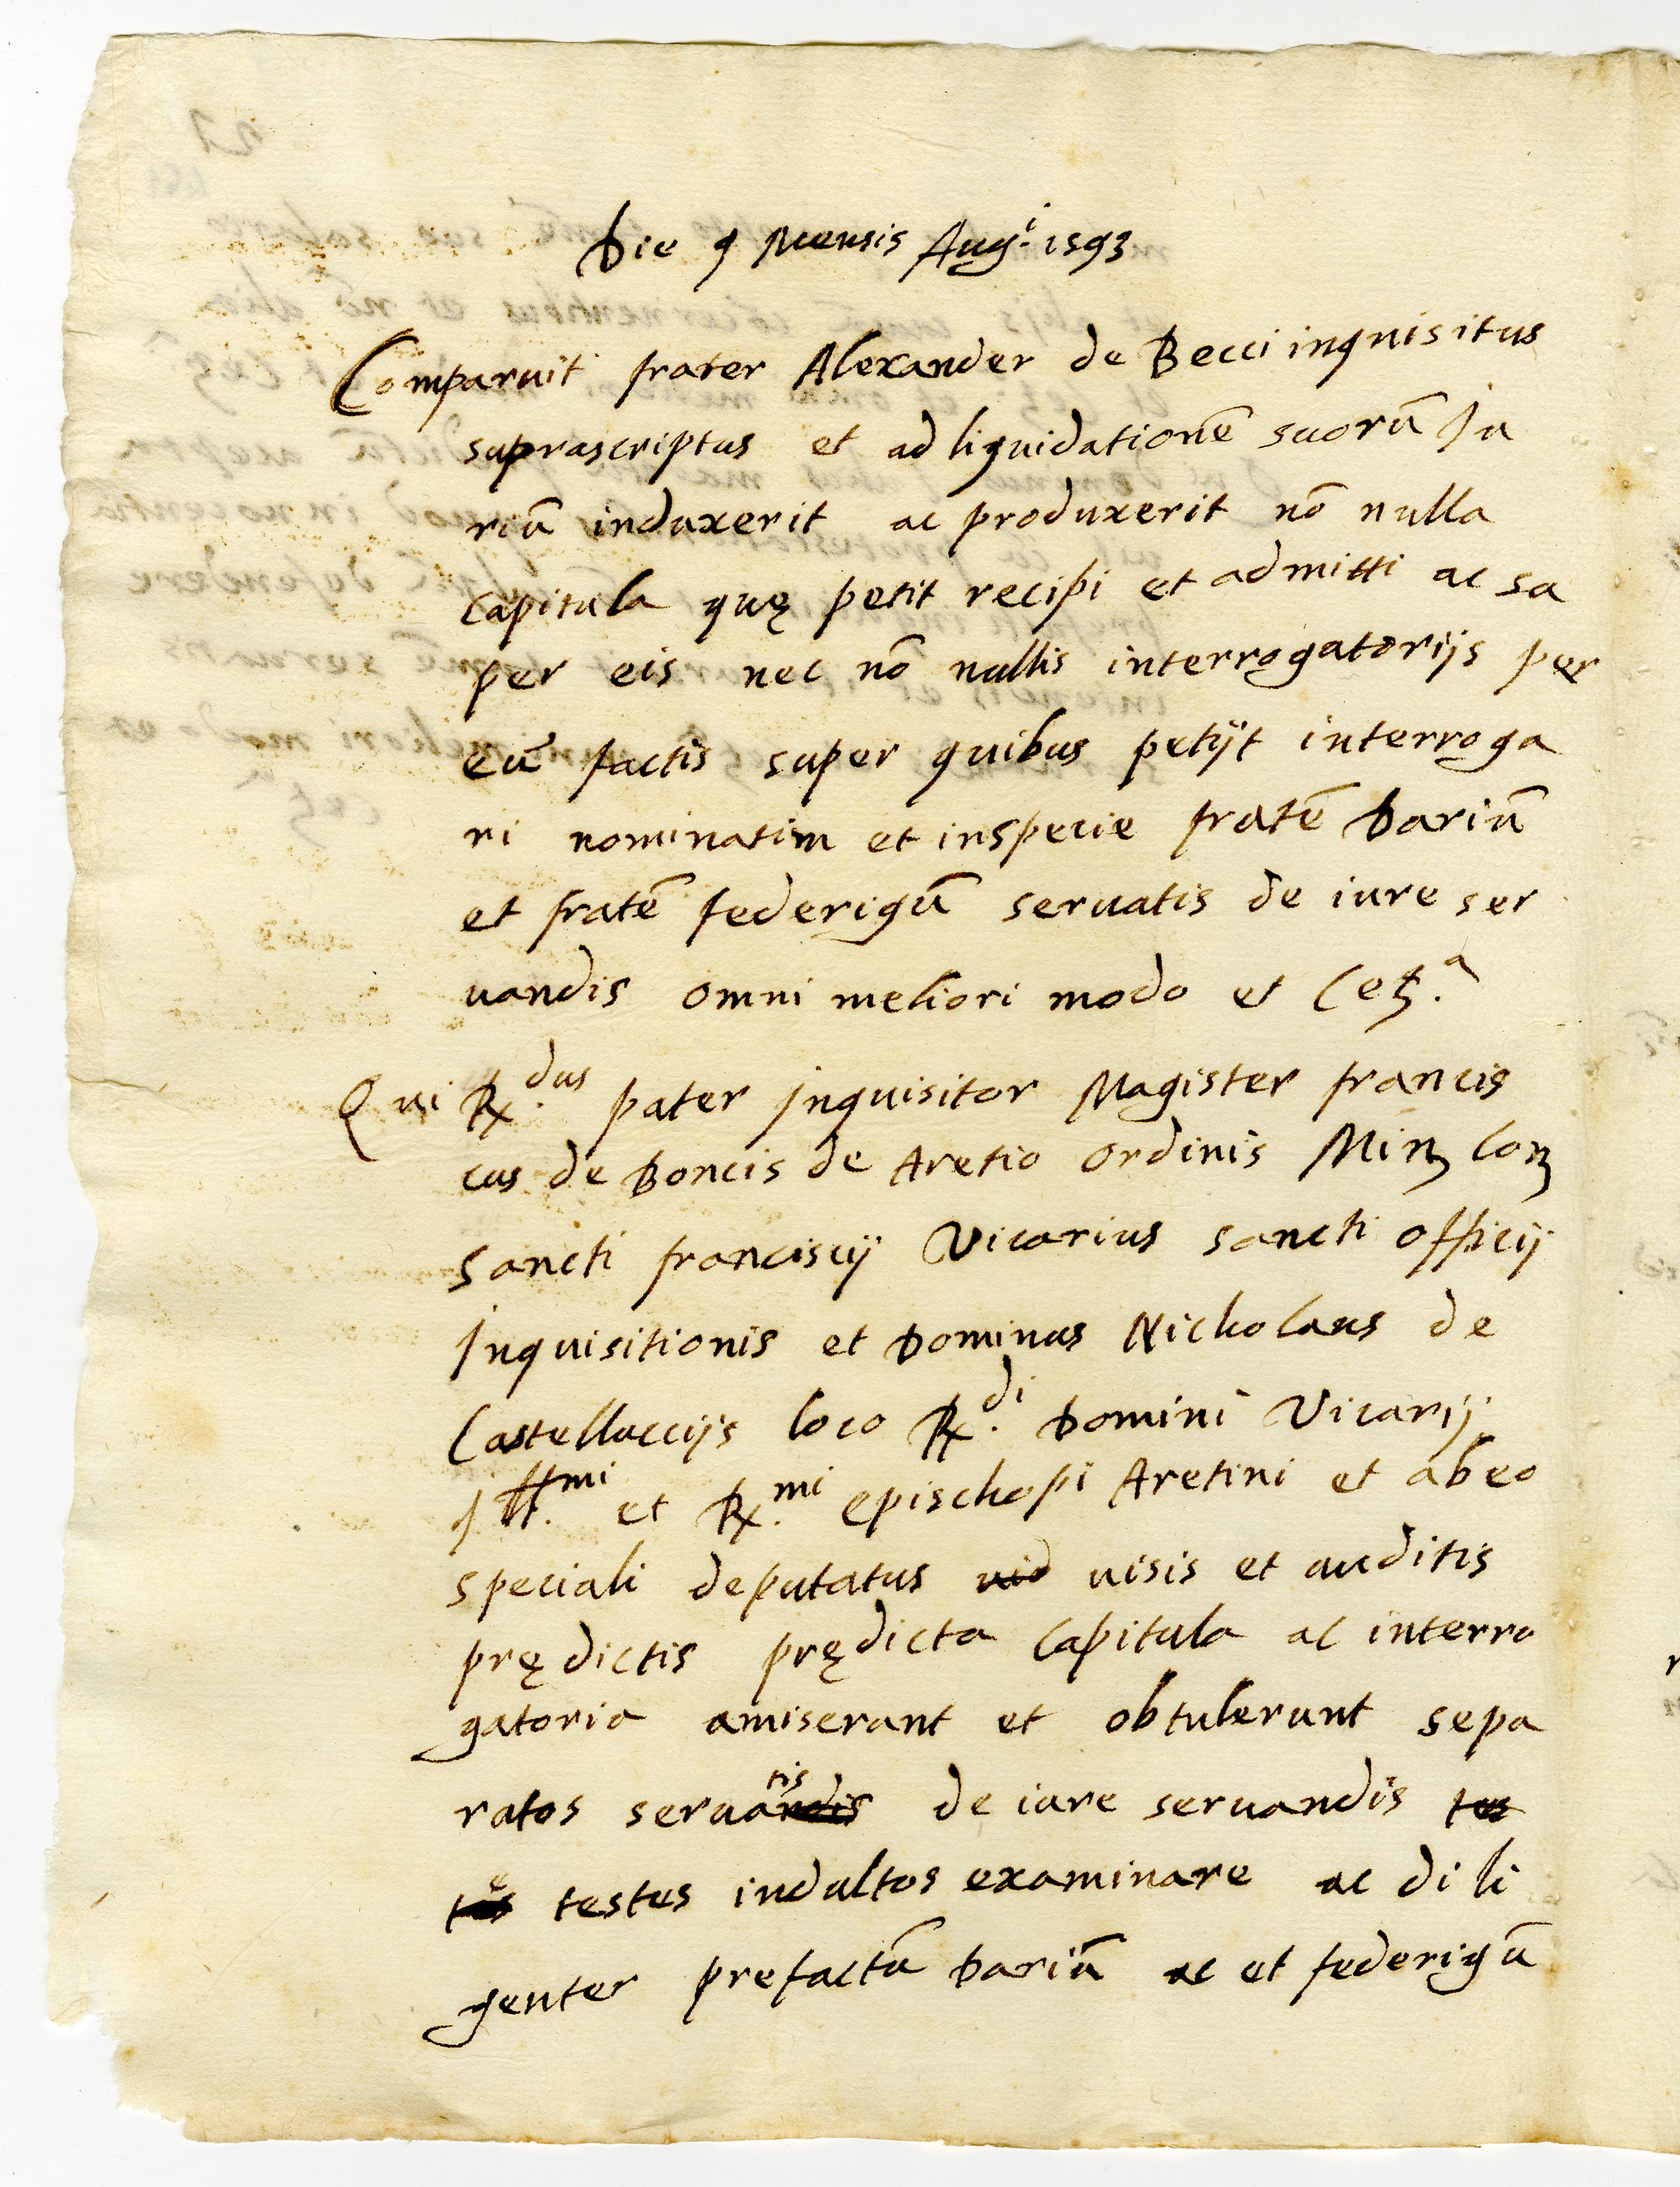 Die 9 Mensis Aug.i 1593
Comparuit frater Alexander de Becci inquisitus
suprascriptus et ad liquidationē suorū Ju
riū induxerit ac produxerit nō nulla
capitula quę petit recipi et admitti ac su
per eis nec nō nullis interrogatorijs per
eū factis super quibus petijt interroga
ri nominatim et inspecie fratē Dariū
et fratē federigū seruatis de iure ser
uandis omni meliori modo et Cetȝ.a
Qui R.dus pater Jnquisitor Magister francis
cus de Boncis de Aretio ordinis Minȝ Conȝ
sancti franciscij Vicarius sancti officij
Jnquisitionis et Dominus Nicholaus de
Castellaccijs loco R.di Domini Vicarij
Jll.mi et R.mi epischopi Aretini et abeo
speciali deputatus uid uisis et auditis
prędictis prędicta capitula ac interro
gatoria amiserant et obtulerunt sepa
ratos seruandis tis de iure seruandis tes
testes indultos examinare ac dili
genter prefactū Dariū ac et federigū